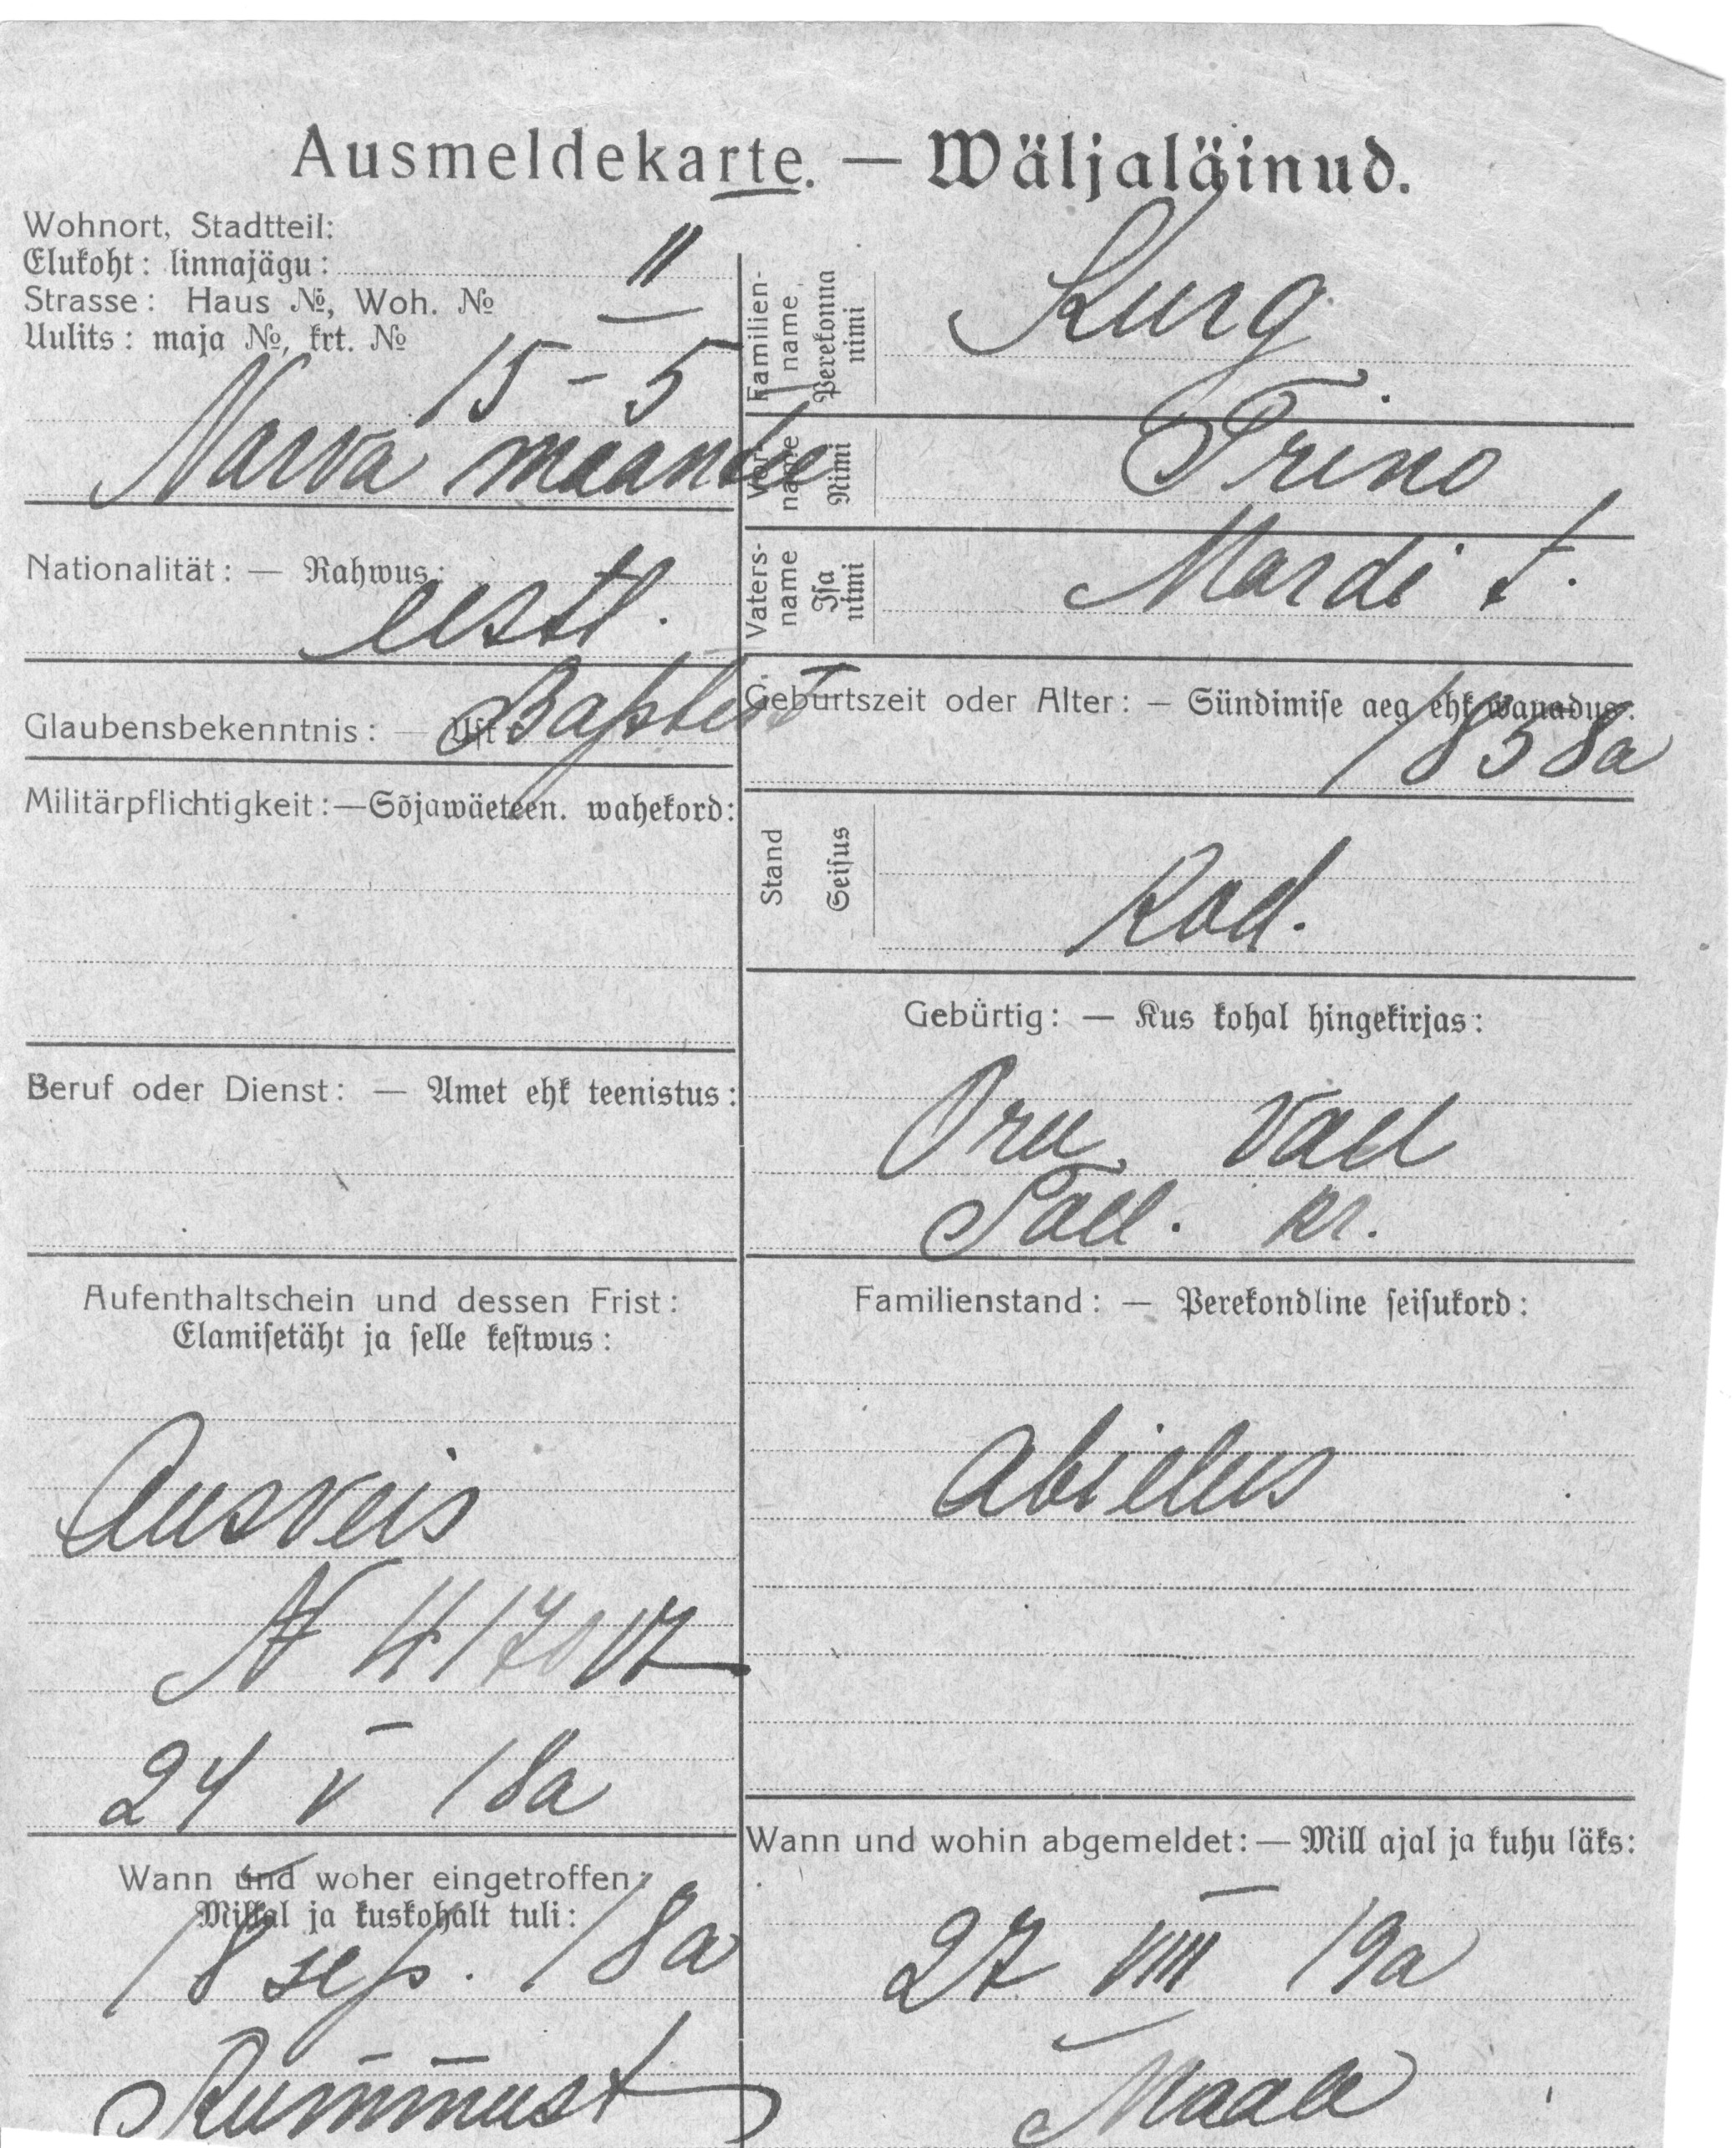 Ausmeldekarte. — Wäljaläinud.
Wohnort, Stadtteil:
Elukoht: linnajägu: II
Strasse: Haus №, Woh. №
Uulits: maja №, krt. №
15 – 5
Narva maante
Nationalität: — Rahwus:
eestl.
Glaubensbekenntnis: — Usk: Baptist
Militärpflichtigkeit:—Sõjawäeteen. wahekord:
Beruf oder Dienst: — Amet ehk teenistus:
Aufenthaltschein und dessen Frist:
Elamisetäht ja selle kestwus:
Ausveis
N
24 V 18a
Wann und woher eingetroffen:
Millal ja kuskohalt tuli:
18 sep. 18a
Familien-
name
Perekonna
nimi
Kurg
Vor-
name
Nimi
Trino
Vaters-
name
Isa
nimi
Mardi t.
Geburtszeit oder Alter: — Sündimise aeg ehk wanadus:
1858a
Stand
Seisus
Kod.
Gebürtig: — Kus kohal hingekirjas:
Oru vald
Tall. kr.
Familienstand: — Perekondline seisukord:
abielus
Wann und wohin abgemeldet: — Mill ajal ja kuhu läks:
27 VIII 19a
Maale